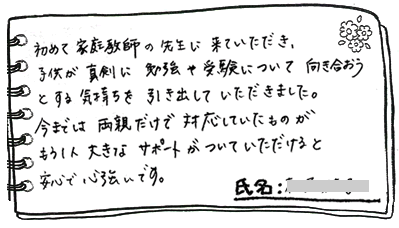 初めて家庭教師の先生に来ていただき、
子供が真剣に勉強や受験について向き合おう
とする気持ちを引き出していただきました。
今までは両親だけで対応していたものが
もう1人大きなサポートがついていただけると
安心で心強いです。
氏名: